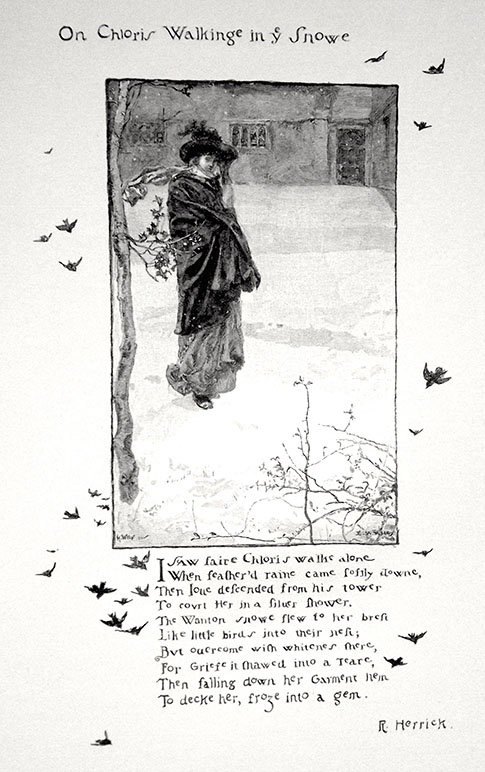 On Chloris Walkinge in yᵉ Snowe
I saw faire Chloris walke alone
When feather'd raine came softly downe,
Then Ioue descended from his tower
To court Her in a silver shower.
The Wanton snowe flew to her brest
Like little birds into their nest;
But overcome with whitenes there,
For Griefe it thawed into a Teare,
Then falling down her Garment hem
To decke her, froze into a gem.
R. Herrick.